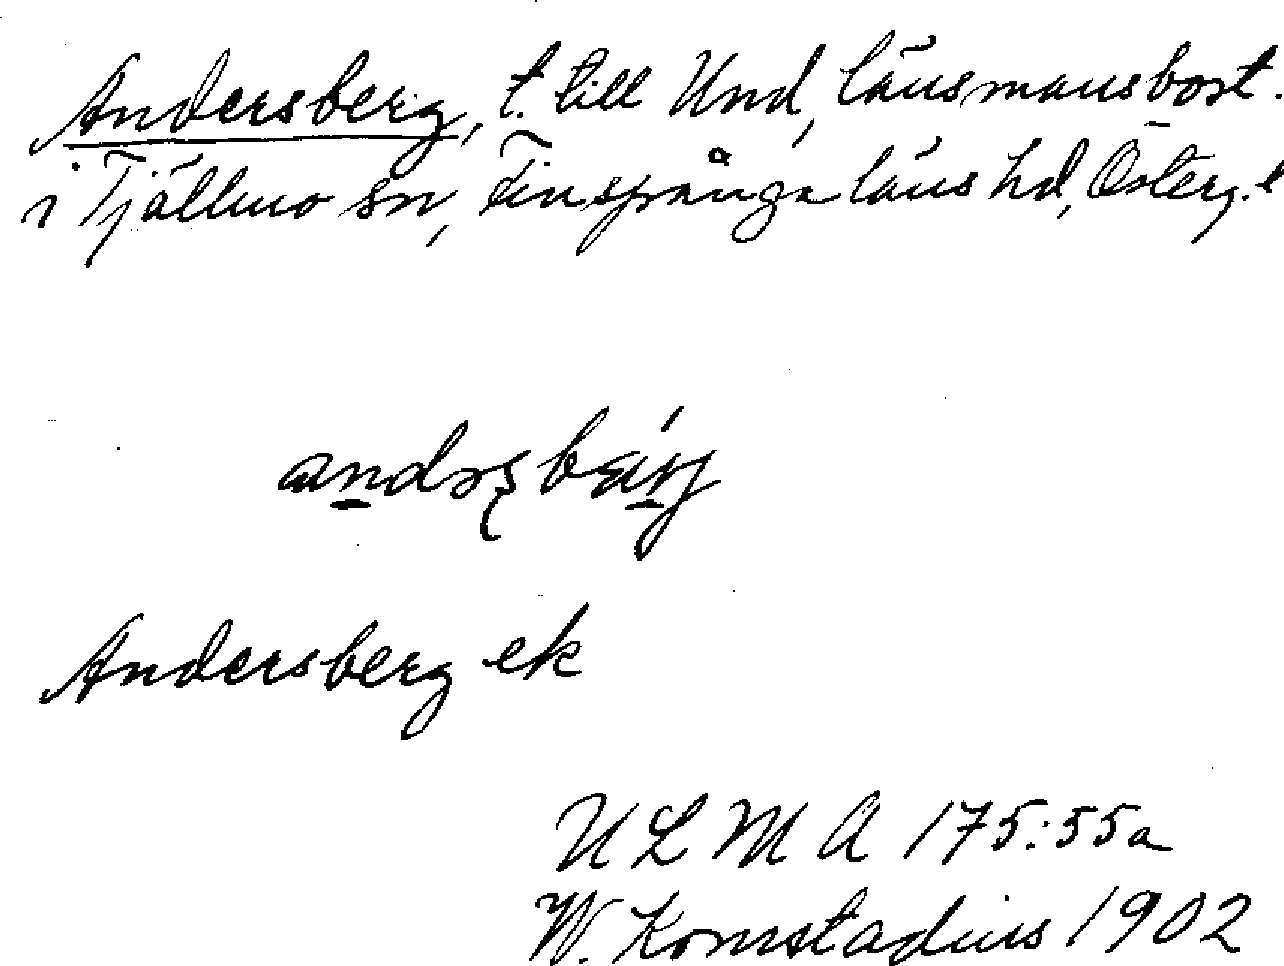 Andersberg, t. till Und, länsmansbost.
i Tjällmo sn, Finspånga läns hd, Österg.
Andersberg ek
ULMA 175:55a
W. Komstadius 1902